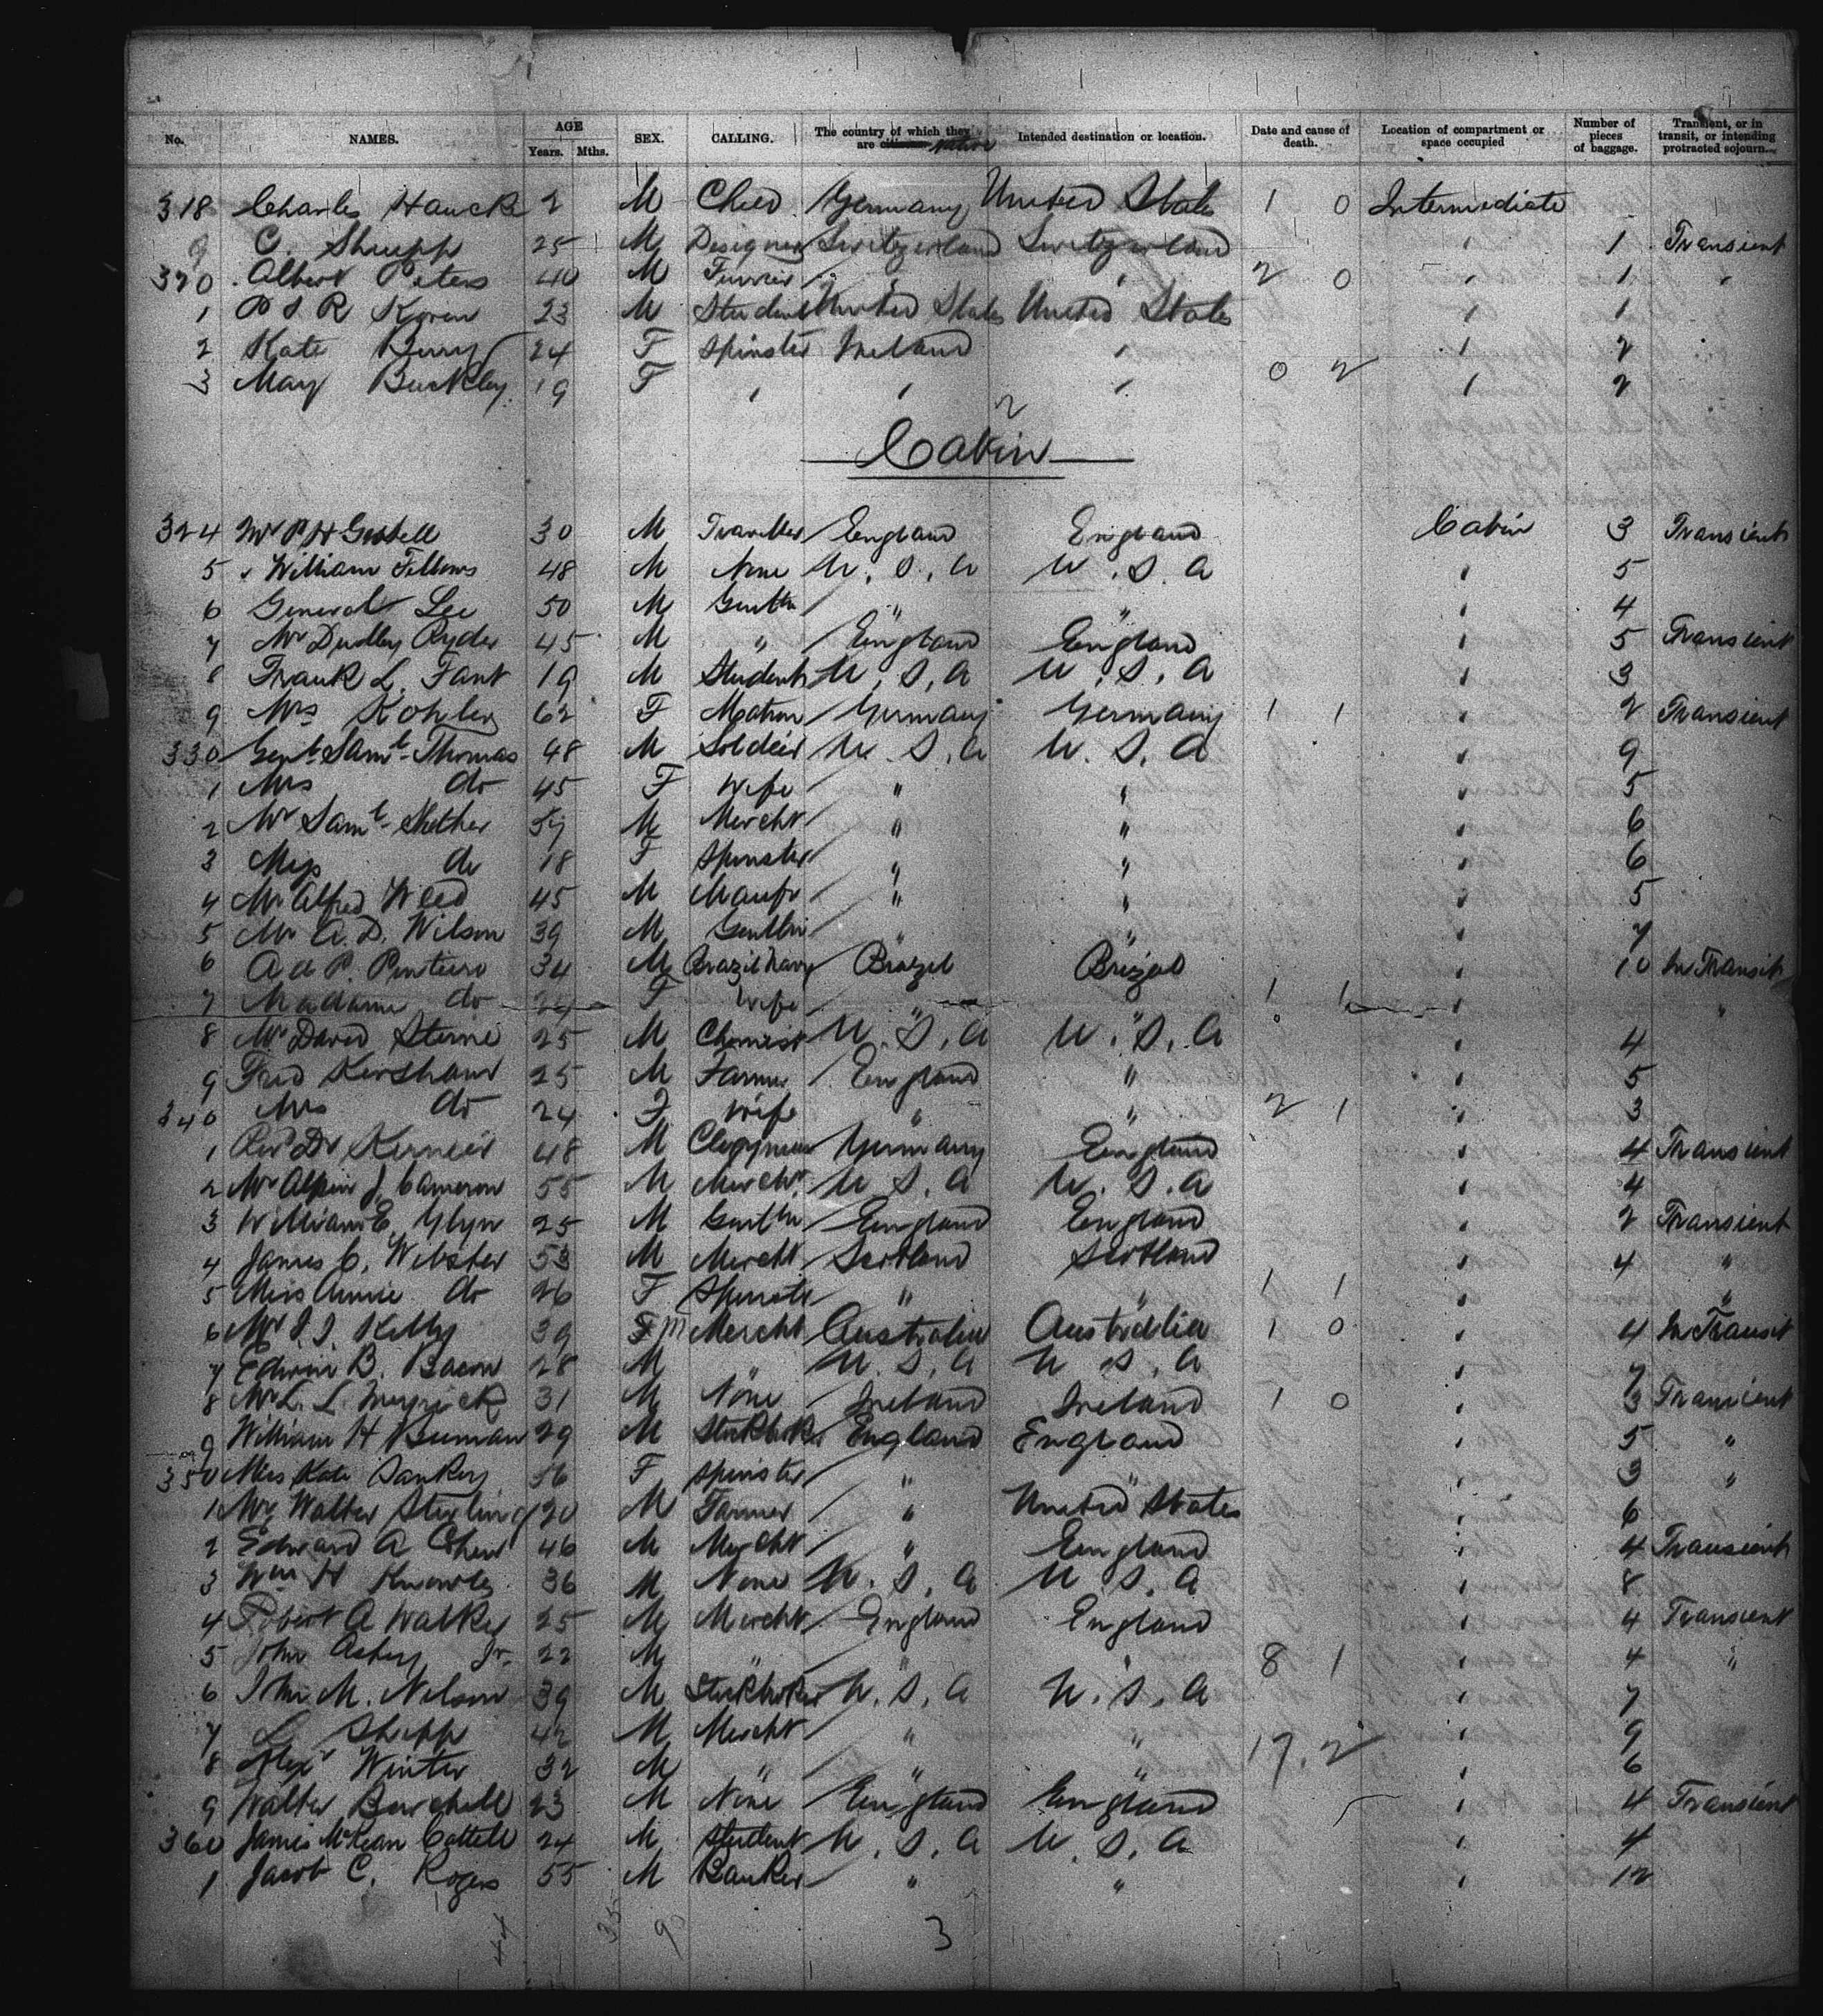 No. NAMES. AGE Years. Mths. SEX. CALLING. The country of which they are citizens native Intended destination or location. Date and cause of death. Location of compartment or space occupied Number of pieces of baggage. Transient, or in transit, or intending protracted sojourn.
318 Charles Hauck 2 M Child Germany United States 1 0 Intermediate
9 C. Shrupp 25 M Designer Switzerland Switzerland " 1 Transient
320 Albert Peters 40 M Furrier " " 2 0 " 1 "
1 P S R Koren 23 M Student United States United States " 1
2 Kate Berry 24 F Spinster Ireland " " 2
3 May Buckley 19 F " " " 0 2 " 2
2
Cabin
324 Mr P H Gestell 30 M Traveller England England Cabin 3 Transient
5 " William Fellows 48 M None U.S.A U.S.A " 5
6 General Lee 50 M Gentln " " " 4
7 Mr Dudley Ryder 45 M " England England " 5 Transient
8 Frank L. Fant 19 M Student U.S.A U.S.A " 3
9 Mrs Kohler 62 F Matron Germany Germany 1 1 " 2 Transient
330 Genl Saml Thomas 48 M Soldier U.S.A U.S.A " 9
1 Mrs do 45 F Wife " " " 5
2 Mr Saml Shether M Mercht " " " 6
3 Miss do 18 F Spinster " " " 6
4 Mr Alfred Weed 45 M Manfr " " " 5
5 Mr A. D. Wilson 39 M Gentln " " " 7
6 A d P. Penteiro 34 M Brazil Navy Brazil Brazil " 10 In Transit
7 Madame do 24 F Wife " " 1 1 " "
8 Mr David Sterne 25 M Chemist U.S.A U.S.A " 4
9 Fred Kershaw 25 M Farmer England " " 5
340 Mrs do 24 F Wife " " 2 1 " 3
1 Revd Dr 48 M Clergyman Germany England " 4 Transient
2 Mr Alpin J. Cameron 55 M Mercht U S. A U.S.A " 4
3 William E. Glyn 25 M Gentln England England " 2 Transient
4 James C. Webster 53 M Mercht Scotland Scotland " 4 "
5 Miss Annie do 26 F Spinster " " 1 1 " "
6 Mr J. J. Kelly 39 M Mercht Australia Australia 1 0 " 4 In Transit
7 Edwin B. Bacon 28 M " U.S.A U.S.A " 7
8 Mr L. L. Meyrick 31 M None Ireland Ireland 1 0 " 3 Transient
9 William H Beeman 29 M Stockbroker England England " 5 "
350 Miss Kate Sankey 36 F Spinster " " " 3 "
1 Mr Walter Sterling 20 M Farmer " United States " 6
2 Edward A Chew 46 M Mercht " England " 4 Transient
3 Wm H Knowles 36 M None U.S.A U.S.A " 8
4 Robert A Walker 25 M Mercht England England " 4 Transient
5 John Astey Jr. 22 M " " " 8 1 " 4 "
6 John M. Nelson 39 M Stockbroker U.S.A U.S.A " 7
7 L Shepp 42 M Mercht " " " 9
8 Alexr Winter 32 M " " " 17. 2 " 6
9 Walter Burchell 23 M None England England " 4 Transient
360 James McKean Cattell 24 M Student U.S.A U.S.A " 4
1 Jacob C. Rogers 55 M Banker " " " 12
44 35 9 3